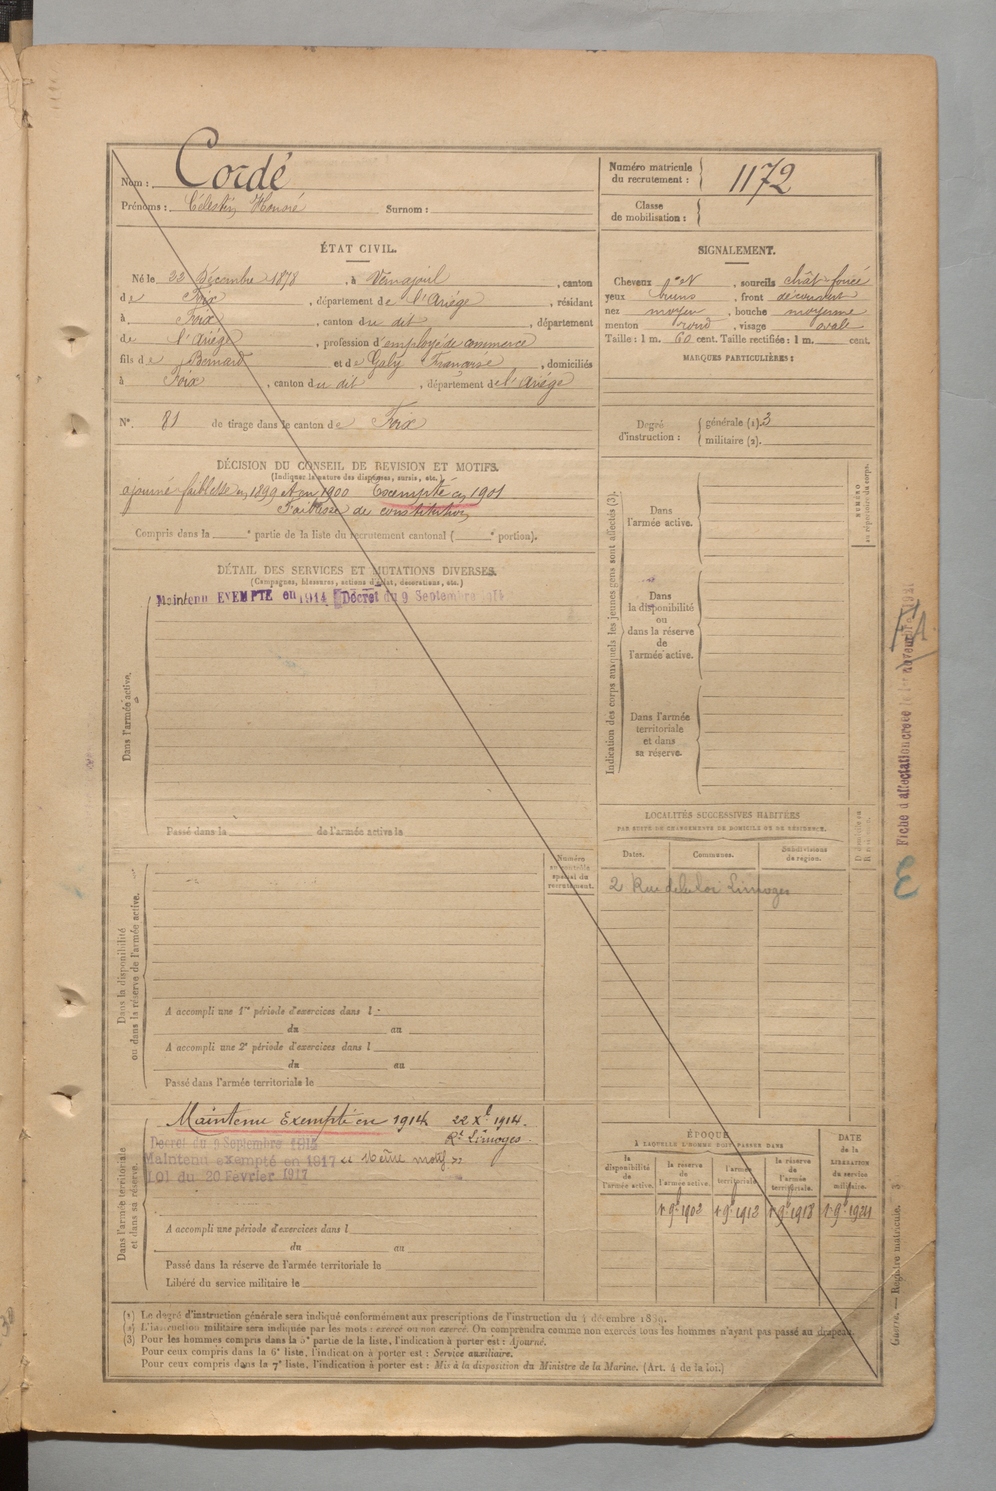 Nom : Cordé
Prénoms : Célestin, Honoré Surnom :
Numéro matricule du recrutement : 1172
Classe de mobilisation :
ÉTAT CIVIL.
Né le 22 Décembre 1878, à Vernajoul, canton
de Foix, département de l'Ariége, résidant
à Foix, canton du dit, département
de l'Ariége, profession d'employé de commerce
fils de Bernard et de Galy Françoise, domiciliés
à Foix, canton du dit, département de l'Ariége
N°. 81 de tirage dans le canton de Foix
SIGNALEMENT.
Cheveux , sourcils chât foncé
yeux bruns, front découvert
nez moyen, bouche moyenne
menton rond, visage ovale
Taille : 1 m. 60 cent. Taille rectifiée : 1 m. cent.
MARQUES PARTICULIÈRES :
Degré d'instruction : générale (1). 3
militaire (2).
DÉCISION DU CONSEIL DE REVISION ET MOTIFS.
(Indiquer la nature des dispenses, sursis, etc.)
ajourné faiblesse en 1899 et en 1900 Exempté en 1901
Faiblesse de constitution
Compris dans la e partie de la liste du recrutement cantonal ( e portion).
DÉTAIL DES SERVICES ET MUTATIONS DIVERSES.
(Campagnes, blessures, actions d'éclat, décorations, etc.)
Maintenu EXEMPTÉ en 1914 Décret du 9 Septembre 1914
Dans l'armée active.
Passé dans la de l'armée active le
Indication des corps auxquels les jeunes gens sont affectés (3).
Dans l'armée active.
Dans la disponibilité ou dans la réserve de l'armée active.
Dans l'armée territoriale et dans sa réserve.
NUMÉRO au répertoire du corps.
LOCALITÉS SUCCESSIVES HABITÉES
PAR SUITE DE CHANGEMENTS DE DOMICILE OU DE RÉSIDENCE.
Dates. Communes. Subdivisions de région.
2 Rue de la loi Limoges
Numéro au contrôle spécial du recrutement.
Dans la disponibilité ou dans la réserve de l'armée active.
A accompli une 1re période d'exercices dans l
du au
A accompli une 2e période d'exercices dans l
du au
Passé dans l'armée territoriale le
Dans l'armée territoriale et dans sa réserve.
Maintenu Exempté en 1914 22 Xe 1914.
Rt Limoges.
Décret du 9 Septembre 1914
Maintenu exempté en 1917 « Même motif »
Loi du 20 Février 1917
A accompli une période d'exercices dans l
du au
Passé dans la réserve de l'armée territoriale le
Libéré du service militaire le
ÉPOQUE
À LAQUELLE L'HOMME DOIT PASSER DANS
la disponibilité de l'armée active.
la réserve de l'armée active.
l'armée territoriale.
la réserve de l'armée territoriale.
DATE de la LIBÉRATION du service militaire.
1 9bre 1902 1 9bre 1912 1 9bre 1918 1 9bre 1924
(1) Le degré d'instruction générale sera indiqué conformément aux prescriptions de l'instruction du 4 décembre 1889.
(2) L'instruction militaire sera indiquée par les mots : exercé ou non exercé. On comprendra comme non exercés tous les hommes n'ayant pas passé au drapeau.
(3) Pour les hommes compris dans la 5e partie de la liste, l'indication à porter est : Ajourné.
Pour ceux compris dans la 6e liste, l'indication à porter est : Service auxiliaire.
Pour ceux compris dans la 7e liste, l'indication à porter est : Mis à la disposition du Ministre de la Marine. (Art. 4 de la loi.)
Fiche d'affectation créée le 1er novembre 1921
Guerre. — Registre matricule. 3